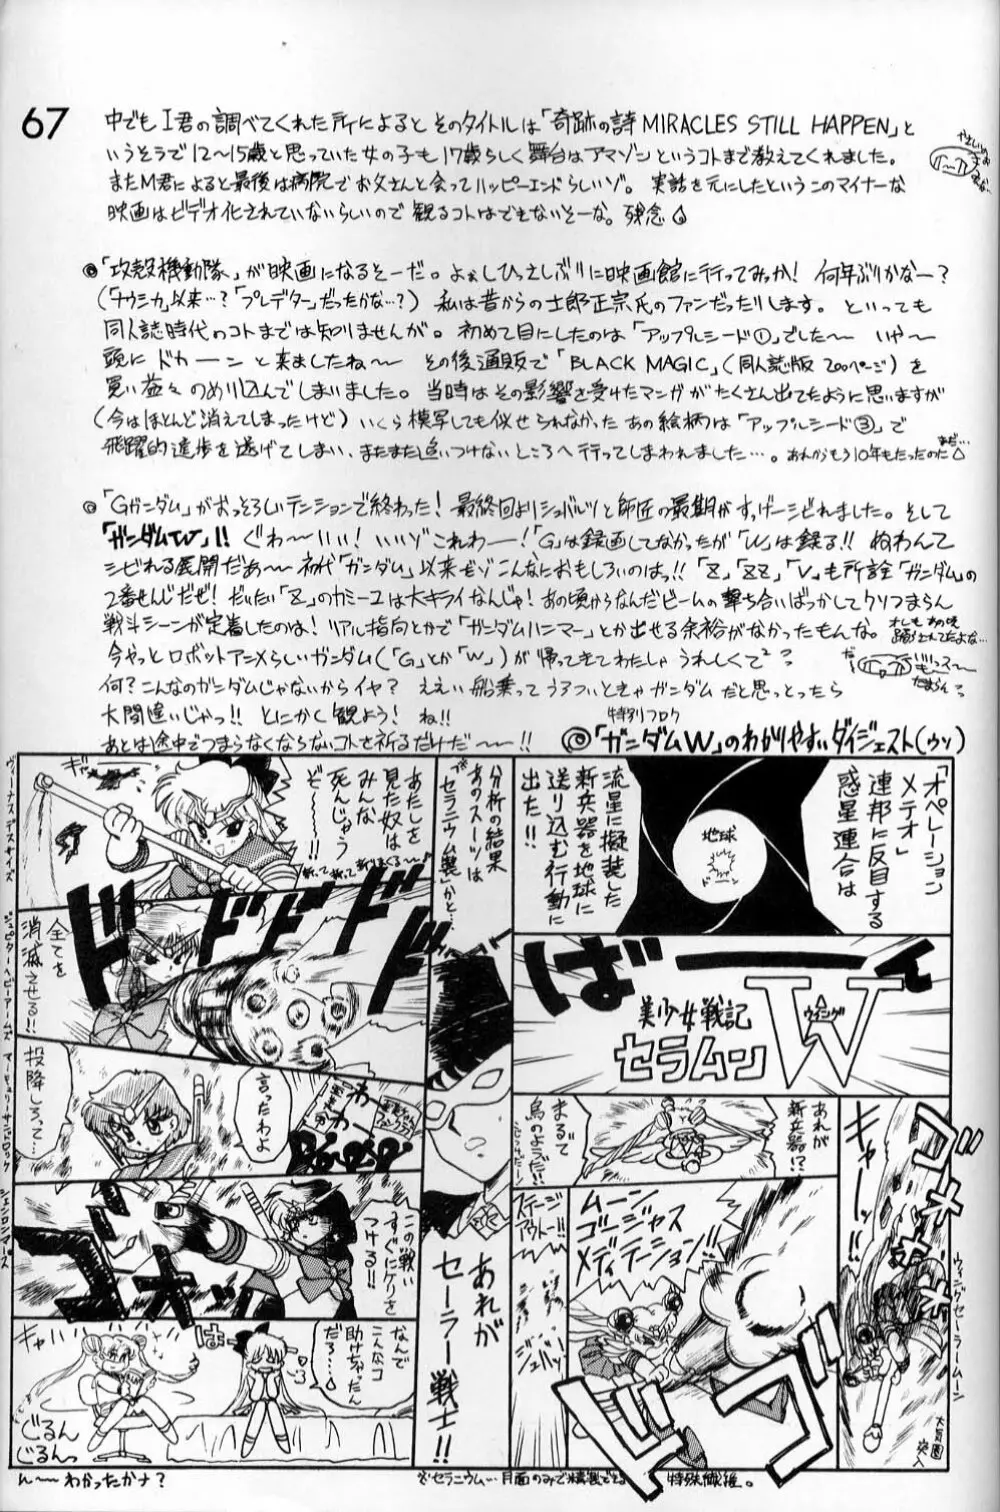 67
中でもI君の調べてくれた所によるとそのタイトルは「奇跡の詩 MIRACLES STILL HAPPEN」と
いうそうで12〜15歳と思っていた女の子も17歳らしく舞台はアマゾンというコトまで教えてくれました。
またM君によると最後は病院でお父さんと会ってハッピーエンドらしいゾ。実話を元にしたというこのマイナーな
映画はビデオ化されていないらしいので観るコトはできないそーな。残念
◎「攻殻機動隊」が映画になるそーだ。よぉしひっさしぶりに映画館に行ってみっか! 何年ぶりかなー?
(「ナウシカ」以来…?「プレデター」だったかな…?) 私は昔からの士郎正宗氏のファンだったりします。といっても
同人誌時代のコトまでは知りませんが。初めて目にしたのは「アップルシード①」でした〜 いや〜
頭にドカーンと来ましたね〜 その後通販で「BLACK MAGIC」(同人誌版 200ページ)を
買い益々のめり込んでしまいました。当時はその影響を受けたマンガがたくさん出てたように思いますが
(今はほとんど消えてしまったけど)いくら模写しても似せられなかったあの絵柄は「アップルシード③」で
飛躍的進歩を遂げてしまい、またまた追いつけないところへ行ってしまわれました…。あれからもう10年もたったのだ
◎「Gガンダム」がおっそろしいテンションで終わった! 最終回よりシュバルツと師匠の最期がすっげーシビれました。そして
「ガンダムW」!! ぐわ〜いい! いいゾこれわー!「G」は録画してなかったが「W」は録る!! ぬわんて
シビれる展開だぁ〜 初代「ガンダム」以来だゾこんなにおもしろいのはっ!!「Z」、「ZZ」、「V」も所詮「ガンダム」の
2番せんじだぜ! だいたい「Z」のカミーユは大キライなんじゃ! あの頃からなんだビームの撃ち合いばっかしてクソつまらん
戦斗シーンが定着したのは! リアル指向とかで「ガンダムハンマー」とか出せる余裕がなかったもんな。オレもあの時踊らされてたよな…
今やっとロボットアニメらしいガンダム(「G」とか「W」)が帰ってきてわたしゃうれしくて²?
何?こんなのガンダムじゃないからイヤ? ええい船乗ってうろついときゃガンダムだと思っとったら
大間違いじゃっ!! とにかく観よう! ね!!
あとは途中でつまらなくならないコトを祈るだけだ〜!!
特別フロク
◎「ガンダムW」のわかりやすいダイジェスト(ウソ)
「オペレーション
メテオ」
連邦に反目する
惑星連合は
地球
ドーン
流星に擬装した
新兵器を地球に
送り込む行動に
出た!!
ばーーん
美少女戦記
セラムーン
ウイング
W
ゴオオオオ
キャーーッ!!
ウィングセーラームーン
大気圏
突入
あれが
新兵器!?
まるで
鳥のようだ!!
ムーン
ゴージャス
メディテーション!!
ステージ
アウトー!!
ジュバッ
ドゴゴ
分析の結果
あのスーツは
※セラニウム製とか…
あれが
セーラー戦士!!
あたしを
見た奴は
みんな
死んじゃう
ぞ〜〜!!
ギャ
ヴィーナス デスサイズ
ドドドドド
全てを
消滅させる!!
ジュピターヘビーアームズ
投降しろって…
言ったわよ
わー
わー
マーキュリーサンドロック
この戦い
すぐにケリを
つける!!
ゴオオッ
シェンロンマーズ
なんで
こんなコ
助けちゃったん
だろ…
はーー
キャ
ぐるん
ぐるんっ
ん〜〜わかったかナ?
※セラニウム…月面のみで精製できる特殊繊維。